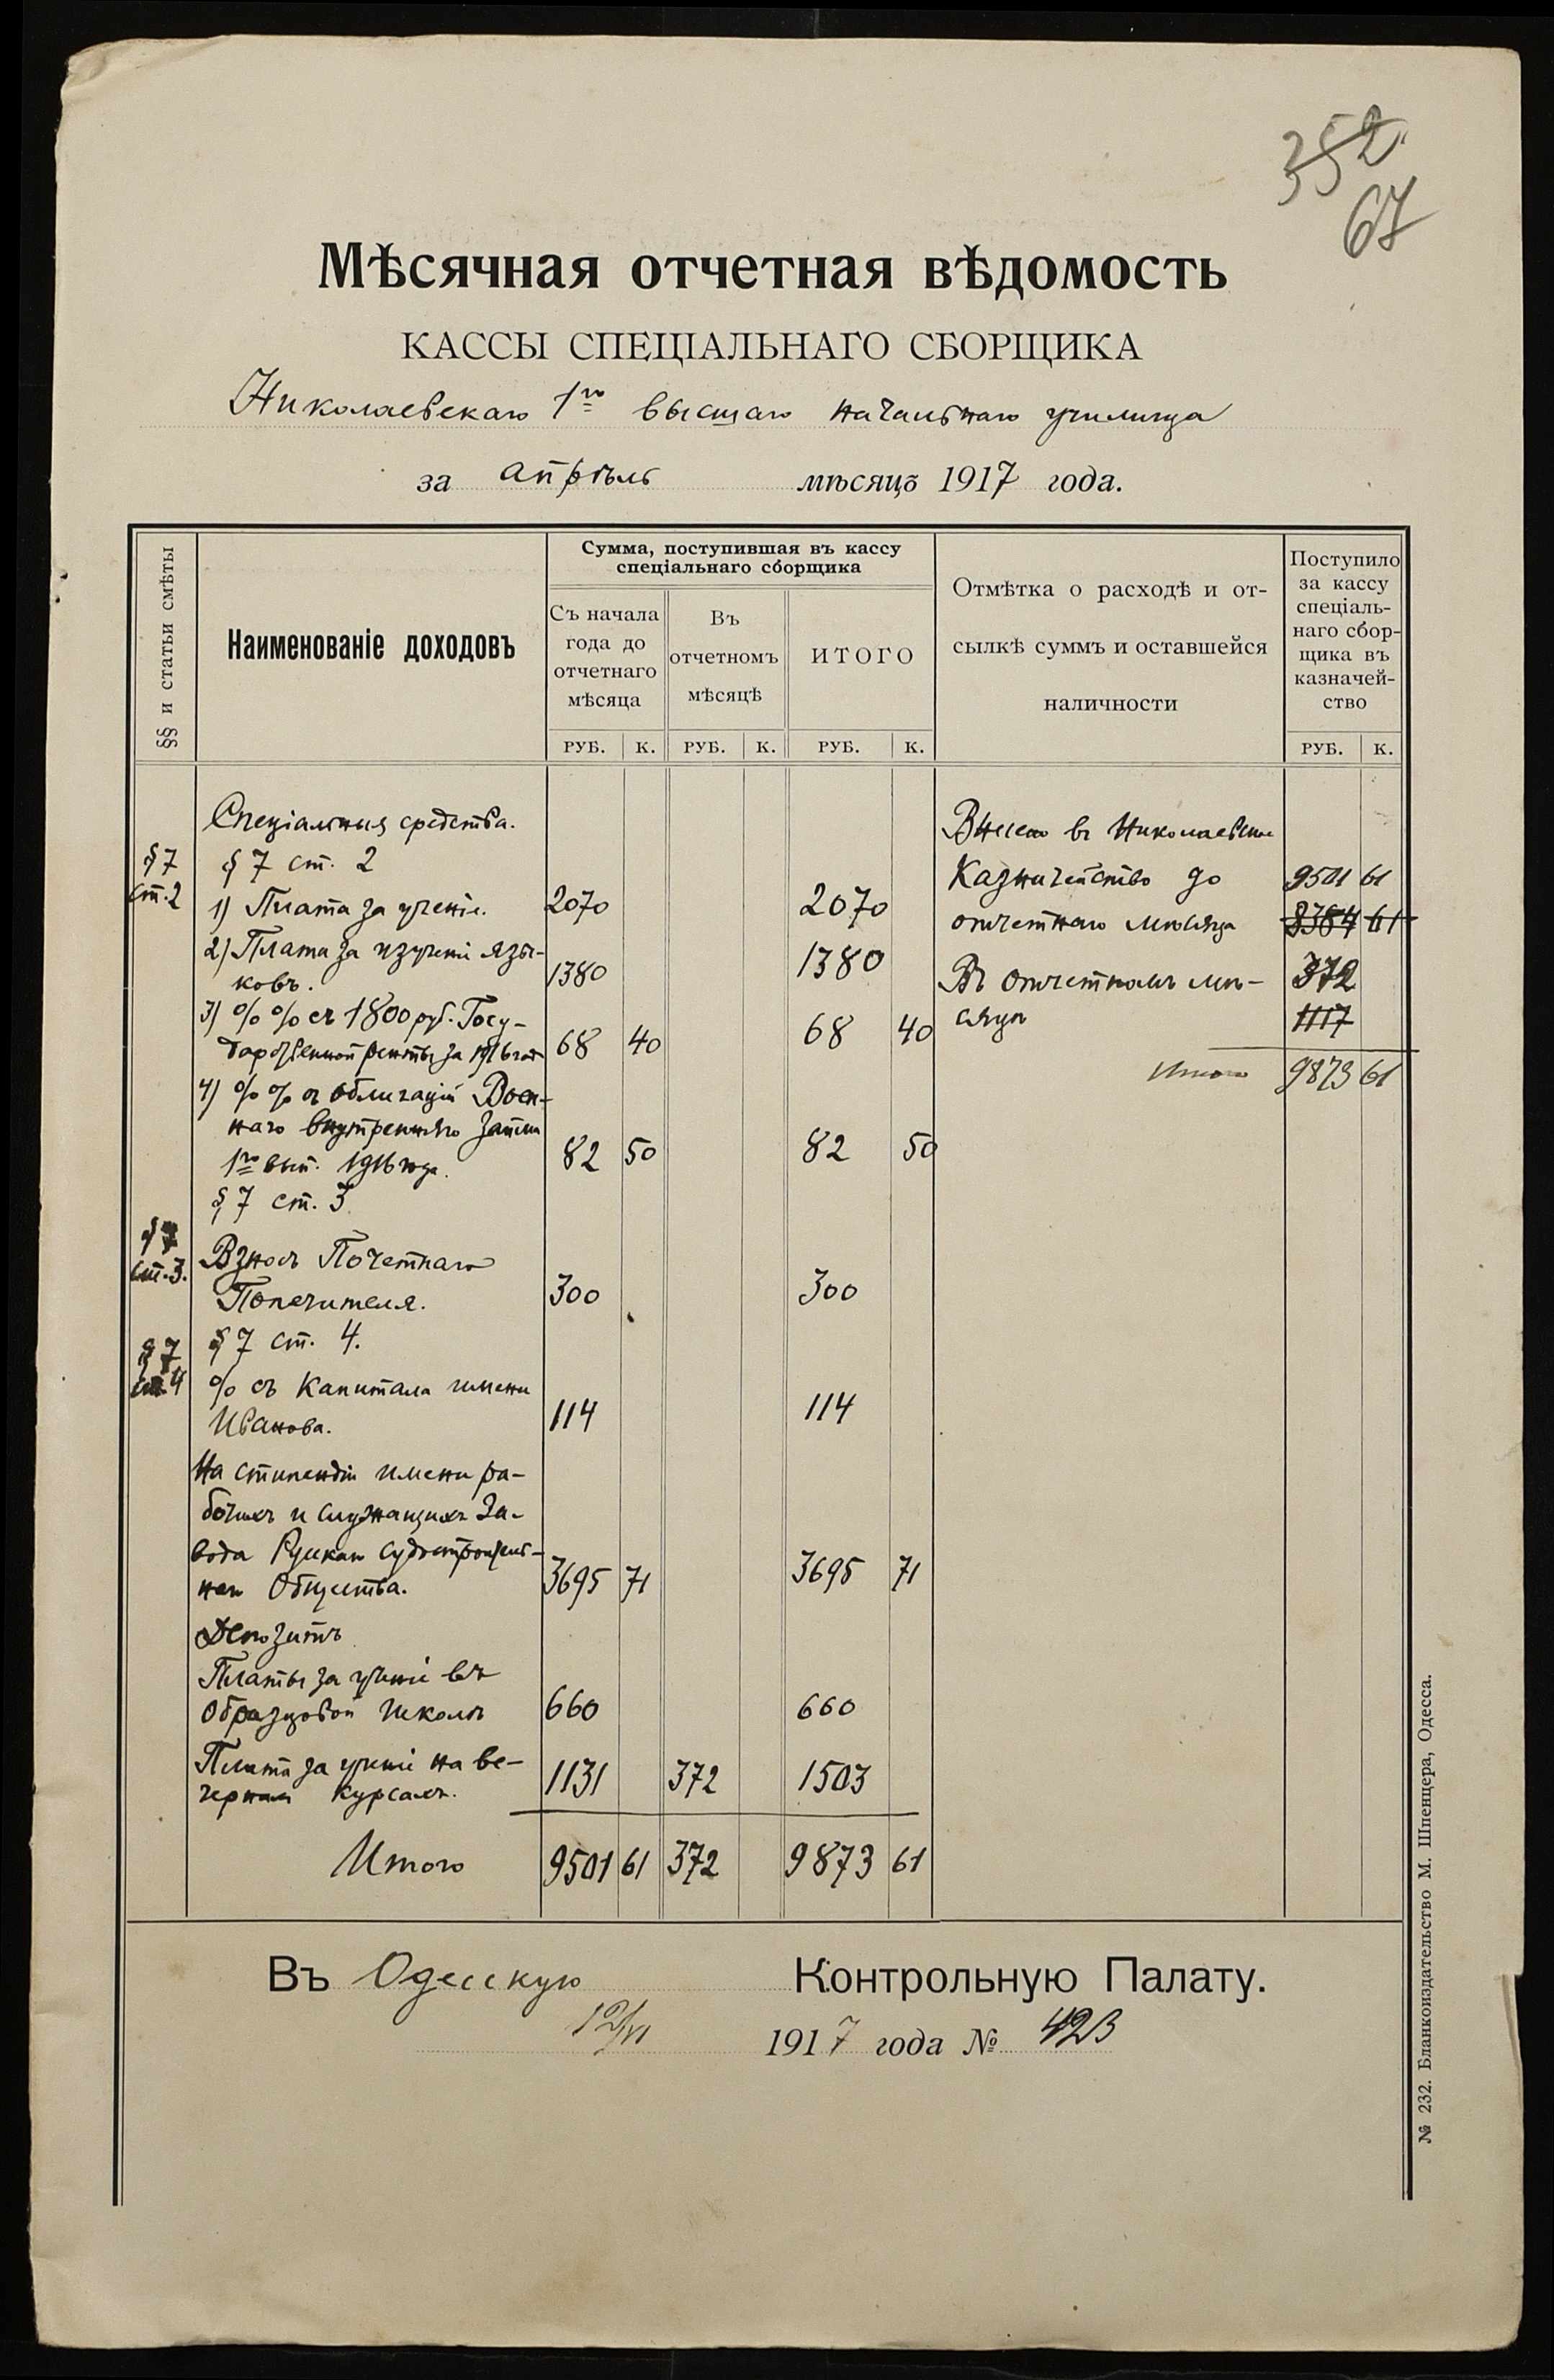 352
67
Мѣсячная отчетная вѣдомость
КАССЫ СПЕЦІАЛЬНАГО СБОРЩИКА
Николаевскаго 1го высшаго начальнаго училища
за апрѣль мѣсяцъ 1917 года.
§§ и статьи смѣты
Наименованіе доходовъ
Сумма, поступившая въ кассу
спеціальнаго сборщика
Съ начала
года до
отчетнаго
мѣсяца
Въ
отчетномъ
мѣсяцѣ
ИТОГО
Отмѣтка о расходѣ и от-
сылкѣ суммъ и оставшейся
наличности
Поступило
за кассу
спеціаль-
наго сбор-
щика въ
казначей-
ство
РУБ. К. РУБ. К. РУБ. К. РУБ. К.
Спеціальныя средства.
§ 7 § 7 ст. 2
ст. 2 1) Плата за ученіе. 2070 2070
2) Плата за изученіе язы-
ковъ. 1380 1380
3) % % съ 1800 руб. Госу-
дарственной ренты за 1916 год 68 40 68 40
4) % % съ облигацій Воен-
наго внутренняго займа
1го вып. 1916 года. 82 50 82 50
§ 7 ст. 3
§ 7
ст. 3. Взносъ Почетнаго
Попечителя. 300 300
§ 7 § 7 ст. 4.
ст. 4 % съ капитала имени
Иванова. 114 114
На стипендіи имени ра-
бочихъ и служащихъ За-
вода Русскаго Судостроитель-
наго Общества. 3695 71 3695 71
Депозитъ
Платы за ученіе въ
Образцовой школѣ 660 660
Плата за ученіе на ве-
чернихъ курсахъ. 1131 372 1503
Итого 9501 61 372 9873 61
Внесено въ Николаевское
Казначейство до 9501 61
отчетнаго мѣсяца 8384 61
Въ отчетномъ мѣ- 372
сяцѣ 1117
Итого 9873 61
Въ Одесскую Контрольную Палату.
12/VI 1917 года № 423
№ 232. Бланкоиздательство М. Шпенцера, Одесса.